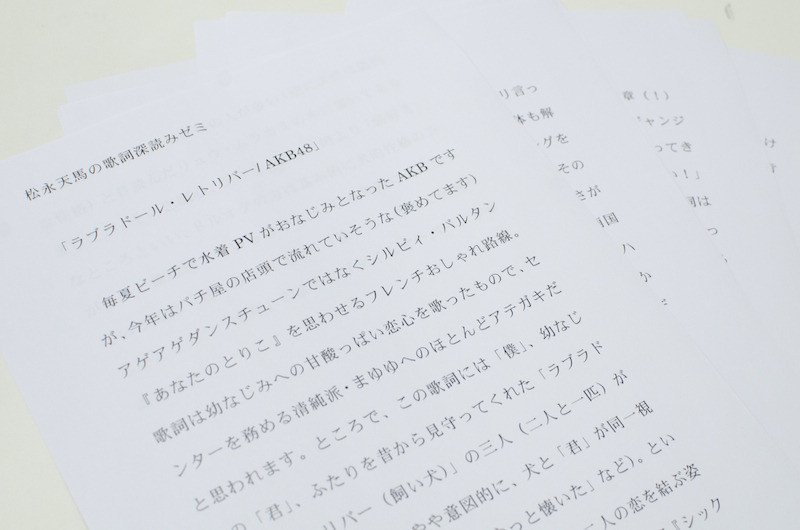 松永天馬の歌詞深読みゼミ
「ラブラドール・レトリバー/ AKB48」
毎夏ビーチで水着 PV がおなじみとなった AKB です
が、今年はパチ屋の店頭で流れていそうな(褒めてます)
アゲアゲダンスチューンではなくシルビィ・バルタン
『あなたのとりこ』を思わせるフレンチおしゃれ路線。
歌詞は幼なじみへの甘酸っぱい恋心を歌ったもので、セ
ンターを務める清純派・まゆゆへのほとんどアテガキだ
と思われます。ところで、この歌詞には「僕」、幼なじ
の「君」、ふたりを昔から見守ってくれた「ラブラド
リバー（飼い犬）」の三人（二人と一匹）が
やや意図的に、犬と「君」が同一視
っと懐いた」など)。とい
人の恋を結ぶ姿
『シック
リ言っ
体も解
グを
その
さが
国
ハ
か
章（！）
「ャンジ
ってき
い！」
詞は
っ
け